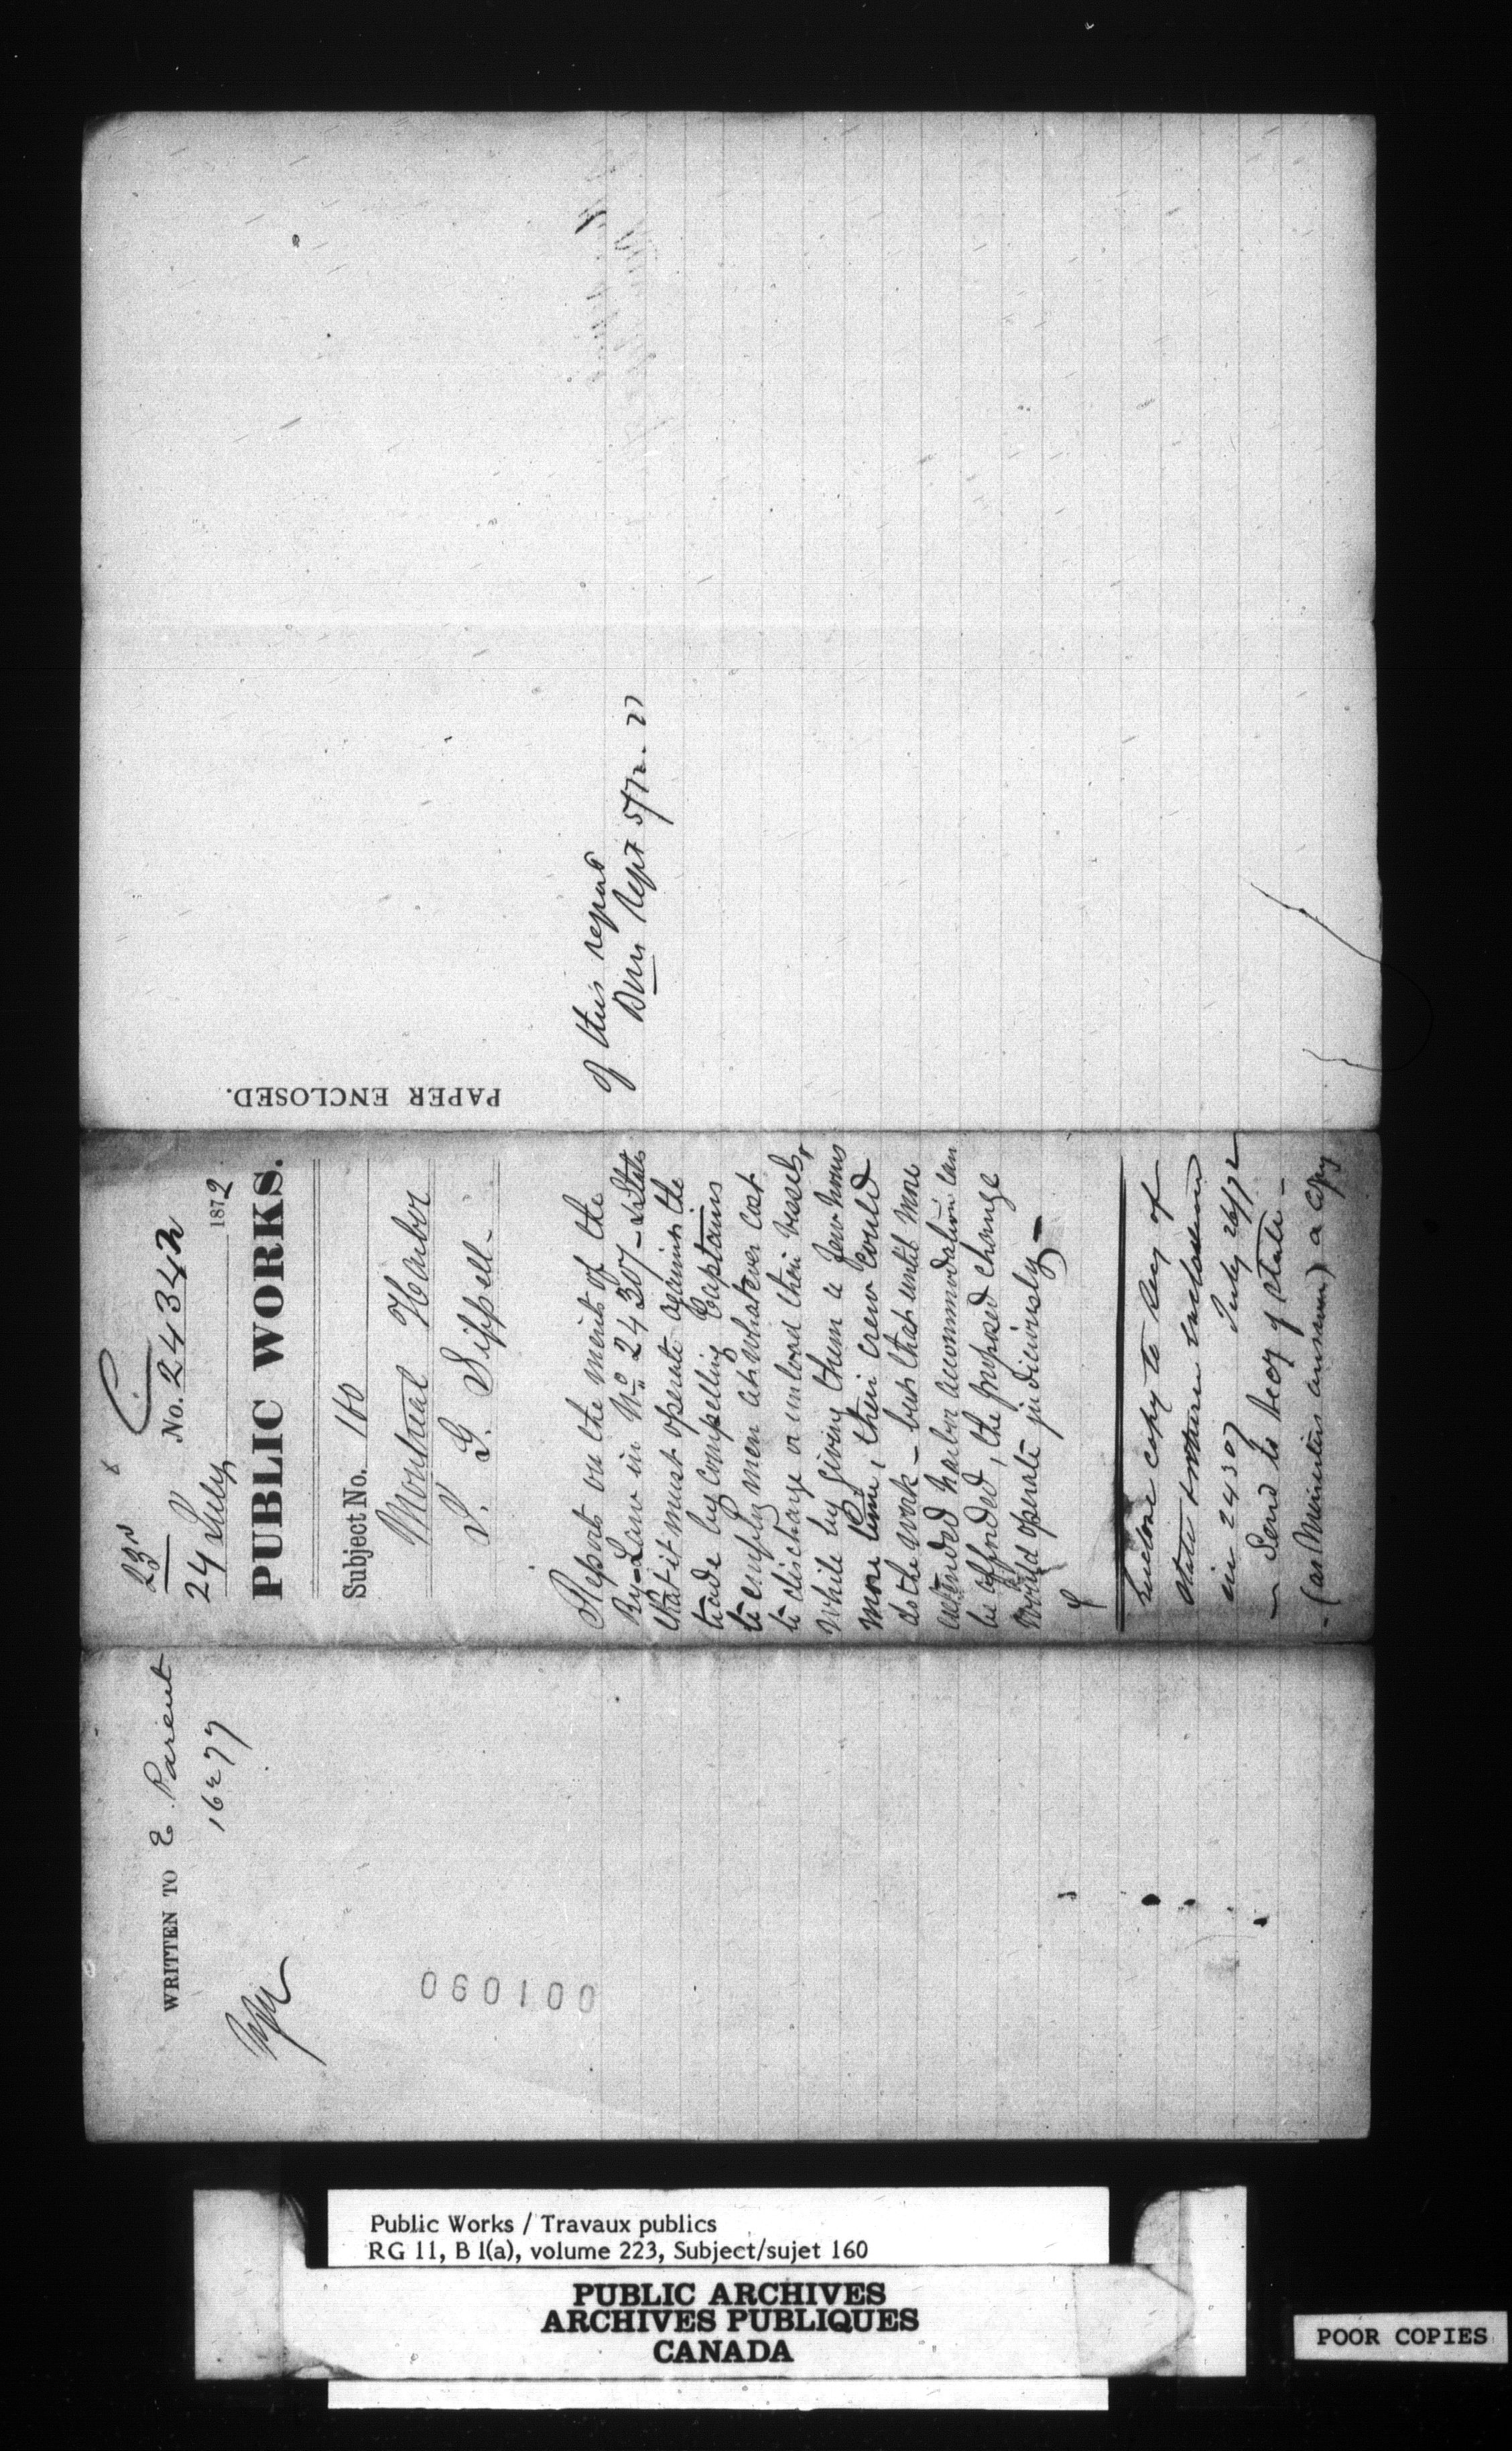 WRITTEN TO E. Parent
16277
001090
23rd
24 July
No. 24342
1872
PUBLIC WORKS.
Subject No. 160
Montreal Harbor
S. G. Sippell
Reports on the merits of the
By-Law in No 24307 - States
that it must operate against the
trade by compelling Captains
to employ men at whatever cost
to discharge or unload their vessels,
while by giving them a few hours
more time, their crew could
do the work - but that until more
extended harbor accommodation can
be afforded, the proposed change
would operate judiciously -
Enclose copy to Secy of
State & return enclosures
in 24307 July 26/72
- Send to Secy of State -
- (as Ministers answer) a copy
PAPER ENCLOSED.
of this report
Sept 5/72.
Public Works / Travaux publics
RG 11, B 1(a), volume 223, Subject/sujet 160
PUBLIC ARCHIVES
ARCHIVES PUBLIQUES
CANADA
POOR COPIES